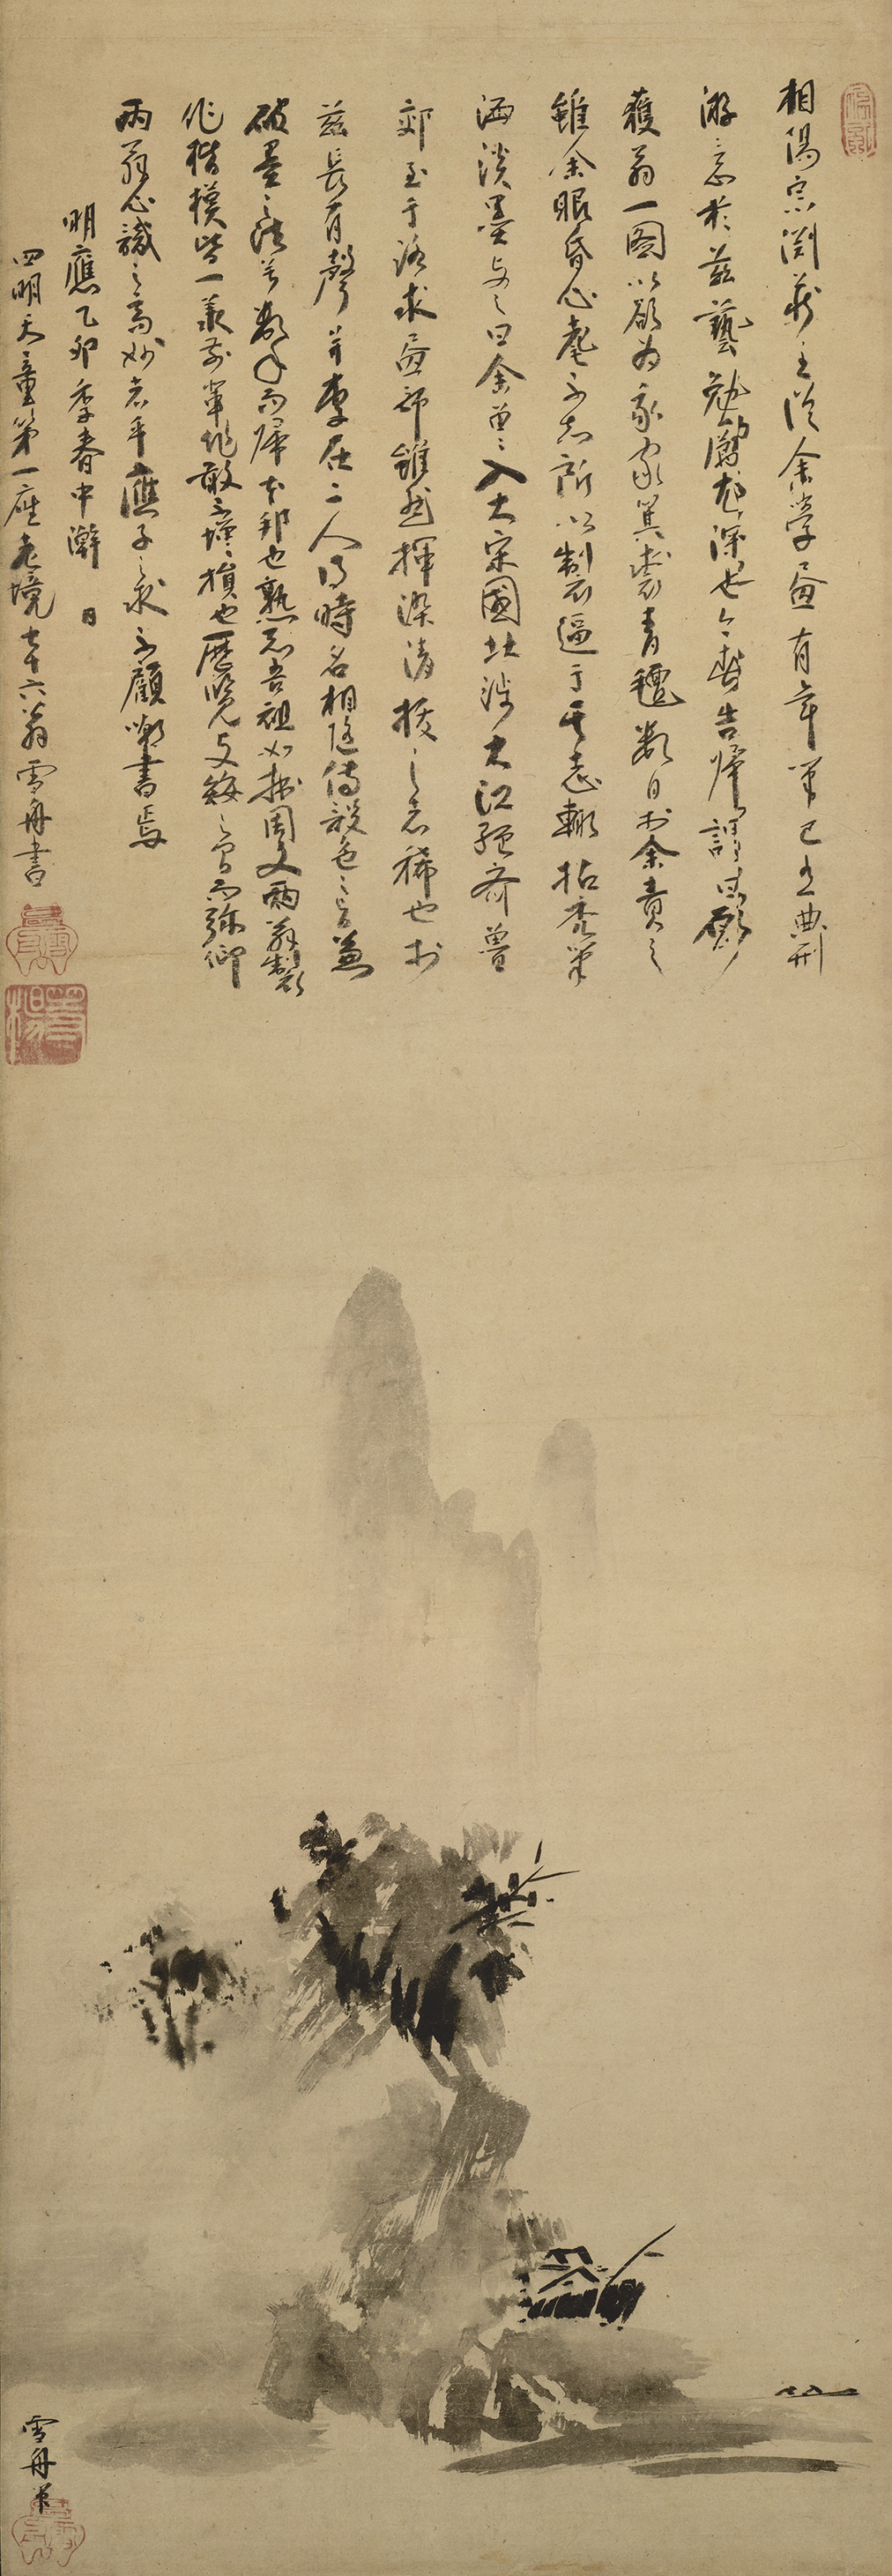 相陽宗淵蔵主從余學畫有年筆已有典刑
游意於茲藝勉勵尤深也今春告歸謂曰願
獲翁一圖以欲為我家箕裘青氈數日於余責之
雖余眼昏心耄不知所以製逼于其志輙拈禿筆
洒淡墨与之曰余曽入大宋國北渉大江經齊魯
郊至于洛求畫師雖然揮染清抜之者稀也於
茲長有聲并李在二人得時名相随傳設色之旨兼
破墨之法兮數年而歸本邦也熟知吾祖如拙周文兩翁製
作楷模皆一承前輩作敢不增損也歴覧支倭之間而弥仰
兩翁心識之高妙者乎應子之求不顧嘲書焉
明應乙卯季春中澣 日
四明天童第一座老境七十六翁雪舟書
雪舟筆